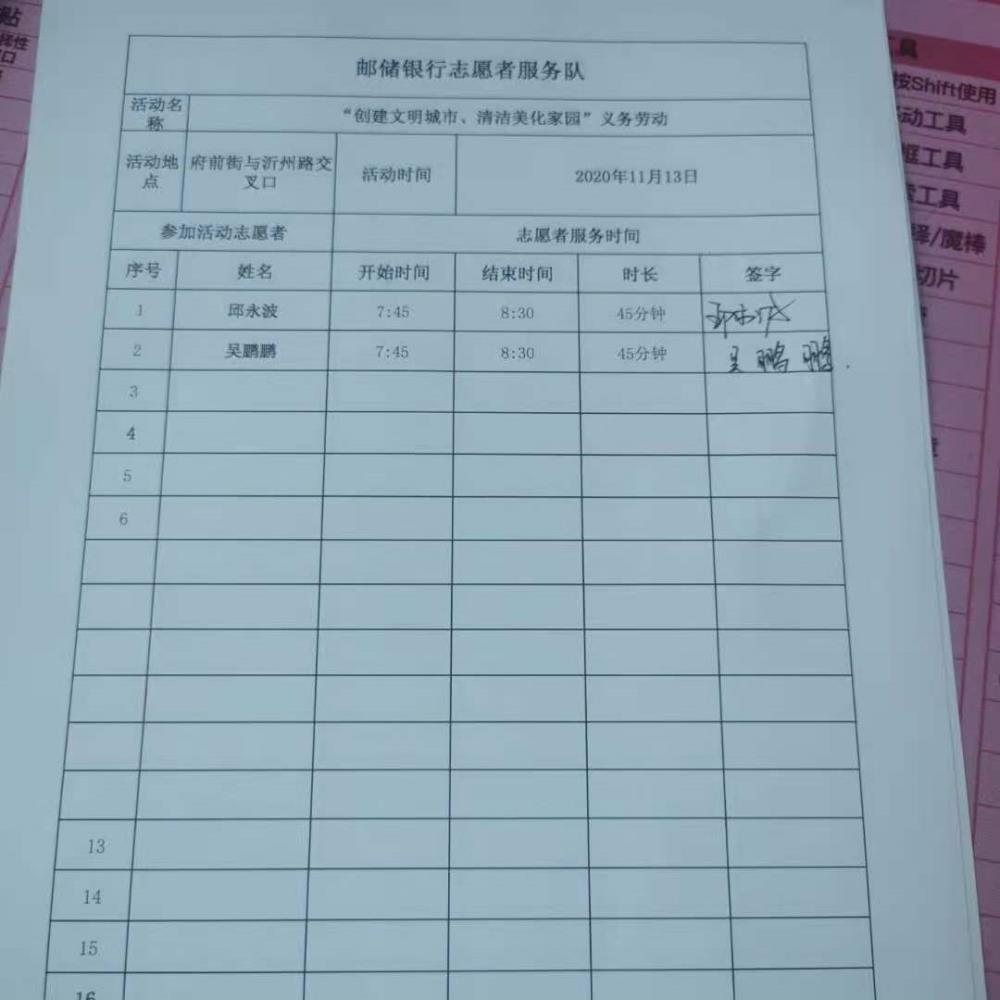 邮储银行志愿者服务队
活动名
称
“创建文明城市、清洁美化家园”义务劳动
活动地
点
府前街与沂州路交
叉口
活动时间
2020年11月13日
参加活动志愿者
志愿者服务时间
序号 姓名 开始时间 结束时间 时长 签字
1 邱永波 7:45 8:30 45分钟
2 吴鹏鹏 7:45 8:30 45分钟 吴鹏鹏
3
4
5
6
13
14
15
16
贴
择性
口
具
按Shift使用
动工具
框工具
索工具
择/魔棒
切片